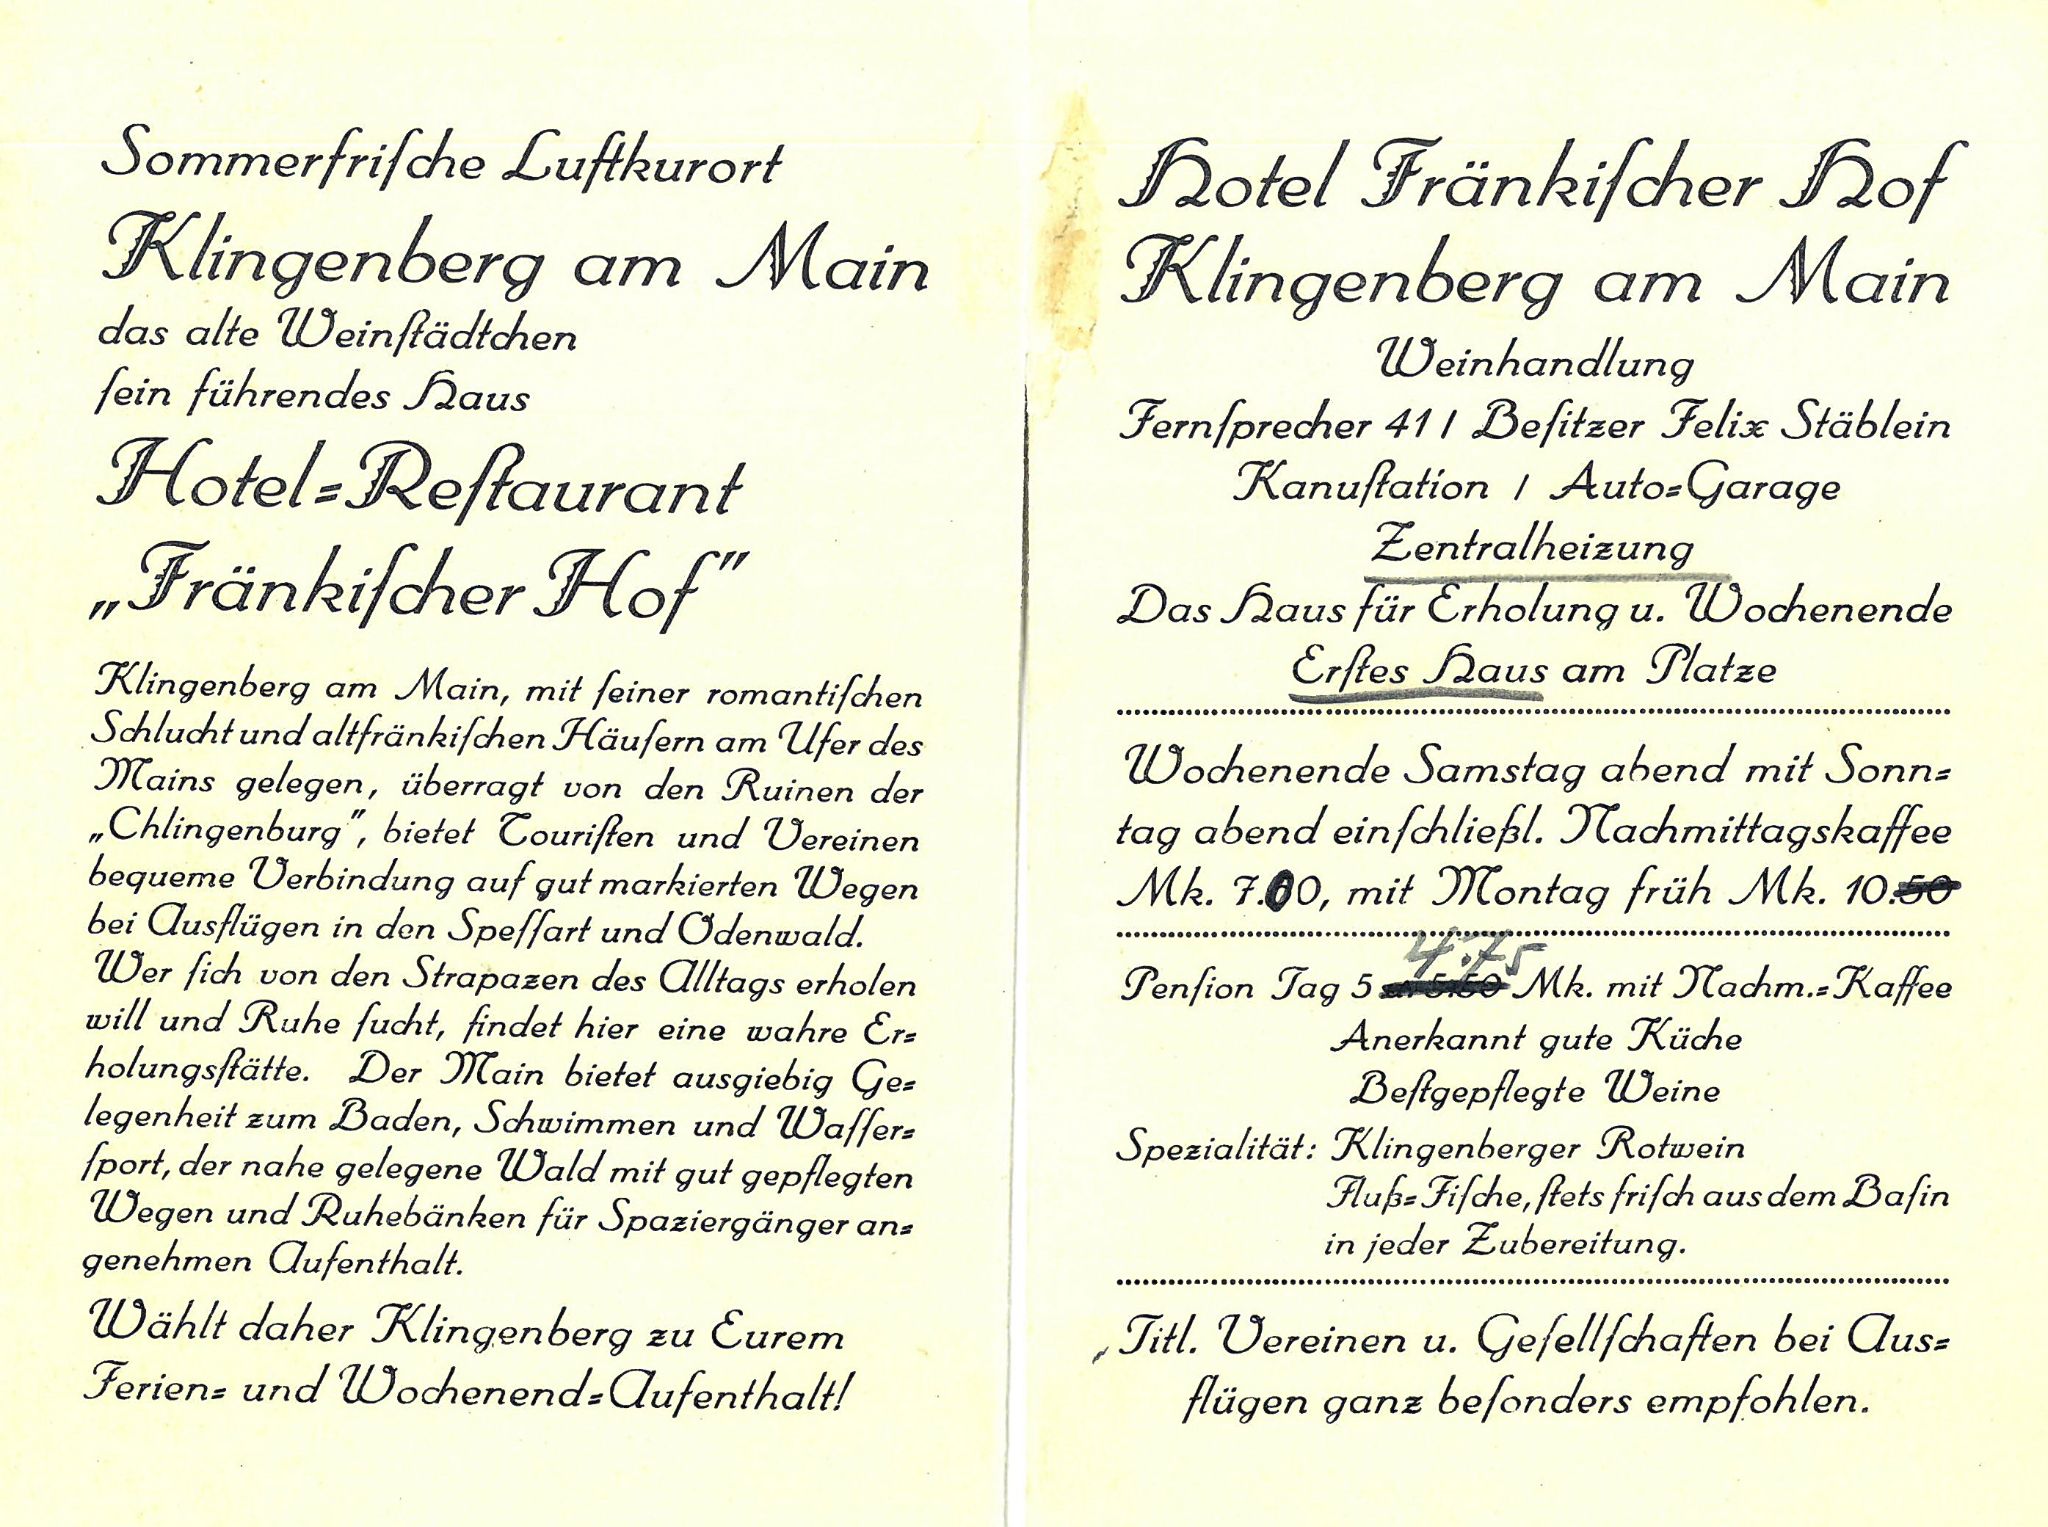 Sommerfriſche Luftkurort
Klingenberg am Main
das alte Weinſtädtchen
ſein führendes Haus
Hotel=Reſtaurant
„Fränkiſcher Hof"
Klingenberg am Main, mit ſeiner romantiſchen
Schlucht und altfränkiſchen Häuſern am Ufer des
Mains gelegen, überragt von den Ruinen der
„Chlingenburg", bietet Touriſten und Vereinen
bequeme Verbindung auf gut markierten Wegen
bei Ausflügen in den Speſſart und Odenwald.
Wer ſich von den Strapazen des Alltags erholen
will und Ruhe ſucht, findet hier eine wahre Er=
holungsſtätte. Der Main bietet ausgiebig Ge=
legenheit zum Baden, Schwimmen und Waſſer=
ſport, der nahe gelegene Wald mit gut gepflegten
Wegen und Ruhebänken für Spaziergänger an=
genehmen Aufenthalt.
Wählt daher Klingenberg zu Eurem
Ferien= und Wochenend=Aufenthalt!
Hotel Fränkiſcher Hof
Klingenberg am Main
Weinhandlung
Fernſprecher 41 / Beſitzer Felix Stäblein
Kanuſtation / Auto=Garage
Zentralheizung
Das Haus für Erholung u. Wochenende
Erſtes Haus am Platze
Wochenende Samstag abend mit Sonn=
tag abend einſchließl. Nachmittagskaffee
Mk. 7.00, mit Montag früh Mk. 10.50
4.75
Penſion Tag 5 5.50 Mk. mit Nachm.=Kaffee
Anerkannt gute Küche
Beſtgepflegte Weine
Spezialität: Klingenberger Rotwein
Fluß=Fiſche, ſtets friſch aus dem Baſin
in jeder Zubereitung.
Titl. Vereinen u. Geſellſchaften bei Aus=
flügen ganz beſonders empfohlen.